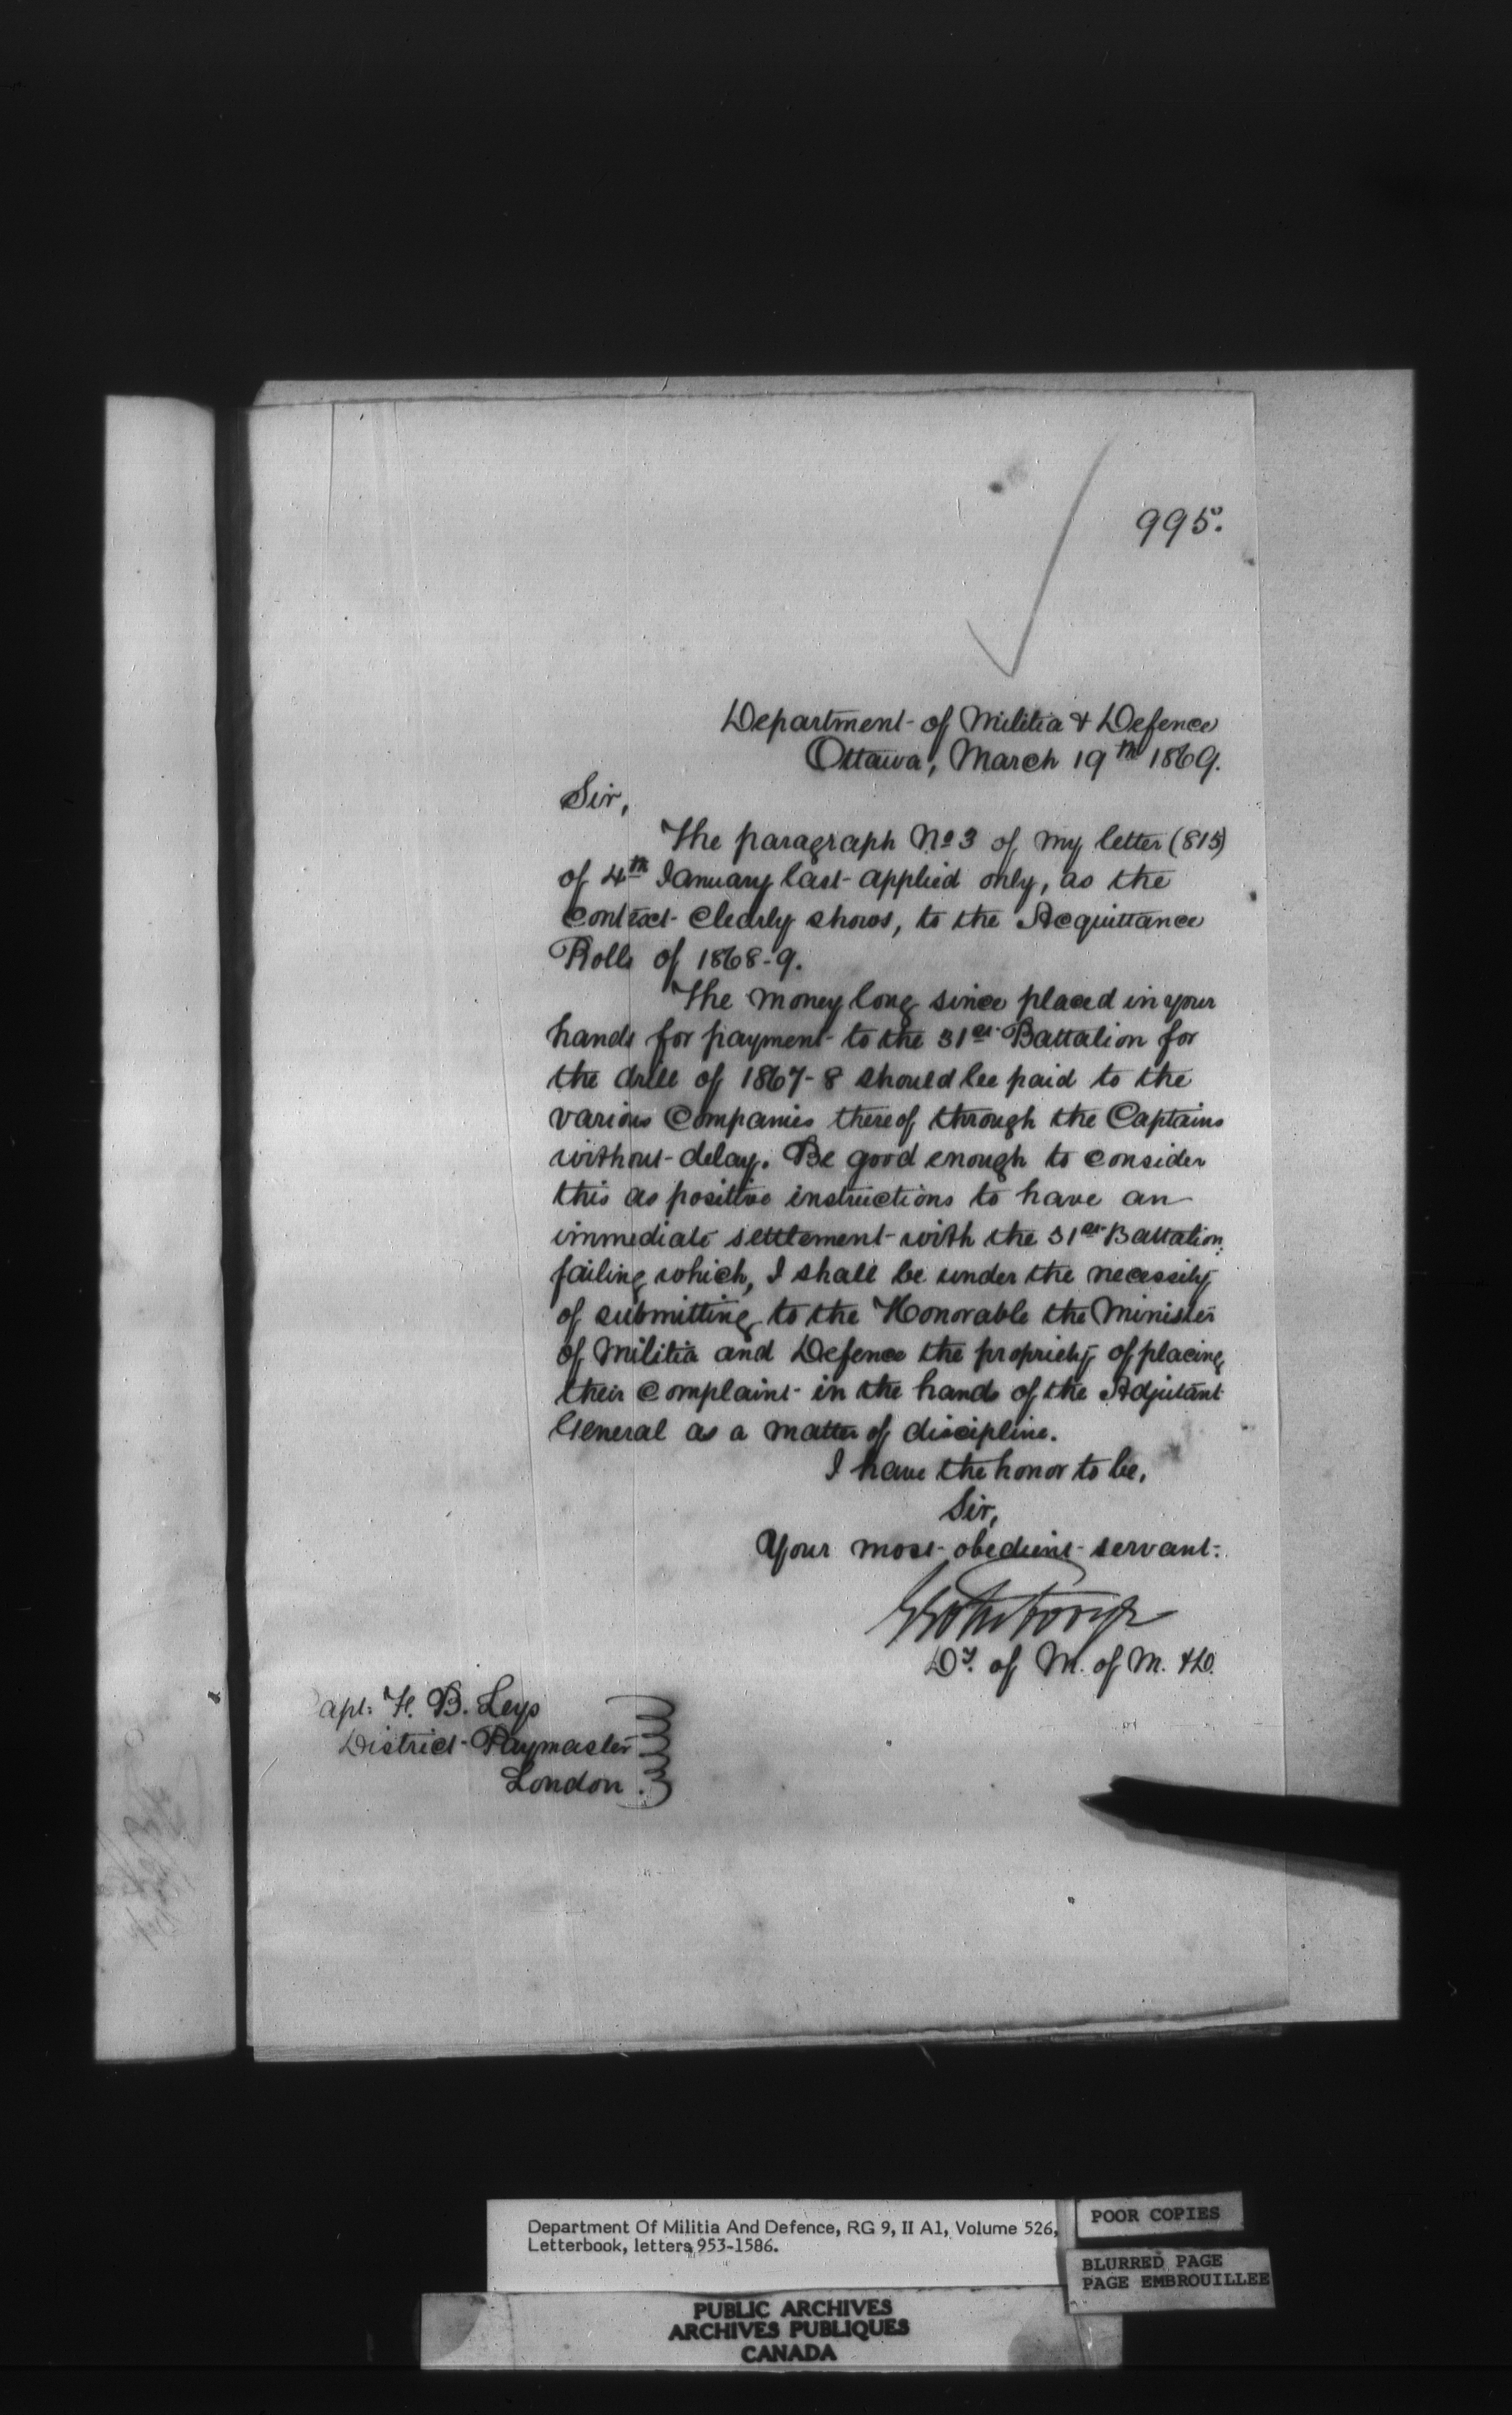 995.
Department of Militia & Defence
Ottawa, March 19th 1869.
Sir,
The paragraph No 3 of my letter (815)
of 4th January last applied only, as the
Contract Clearly shows, to the Acquittance
Rolls of 1868-9.
The money long since placed in your
hands for payment to the 31st Battalion for
the drill of 1867-8 should be paid to the
various Companies thereof through the Captains
without delay. Be good enough to consider
this as positive instructions to have an
immediate settlement with the 31st Battalion,
failing which, I shall be under the necessity
of submitting to the Honorable the Minister
of Militia and Defence the propriety of placing
their Complaint in the hands of the Adjutant
General as a matter of discipline.
I have the honor to be,
Sir,
Your most obedient servant.
Dy. of M. of M. & D.
Capt: F. B. Leys
District Paymaster
London.
Department Of Militia And Defence, RG 9, II A1, Volume 526,
Letterbook, letters 953-1586.
POOR COPIES
BLURRED PAGE
PAGE EMBROUILLEE
PUBLIC ARCHIVES
ARCHIVES PUBLIQUES
CANADA